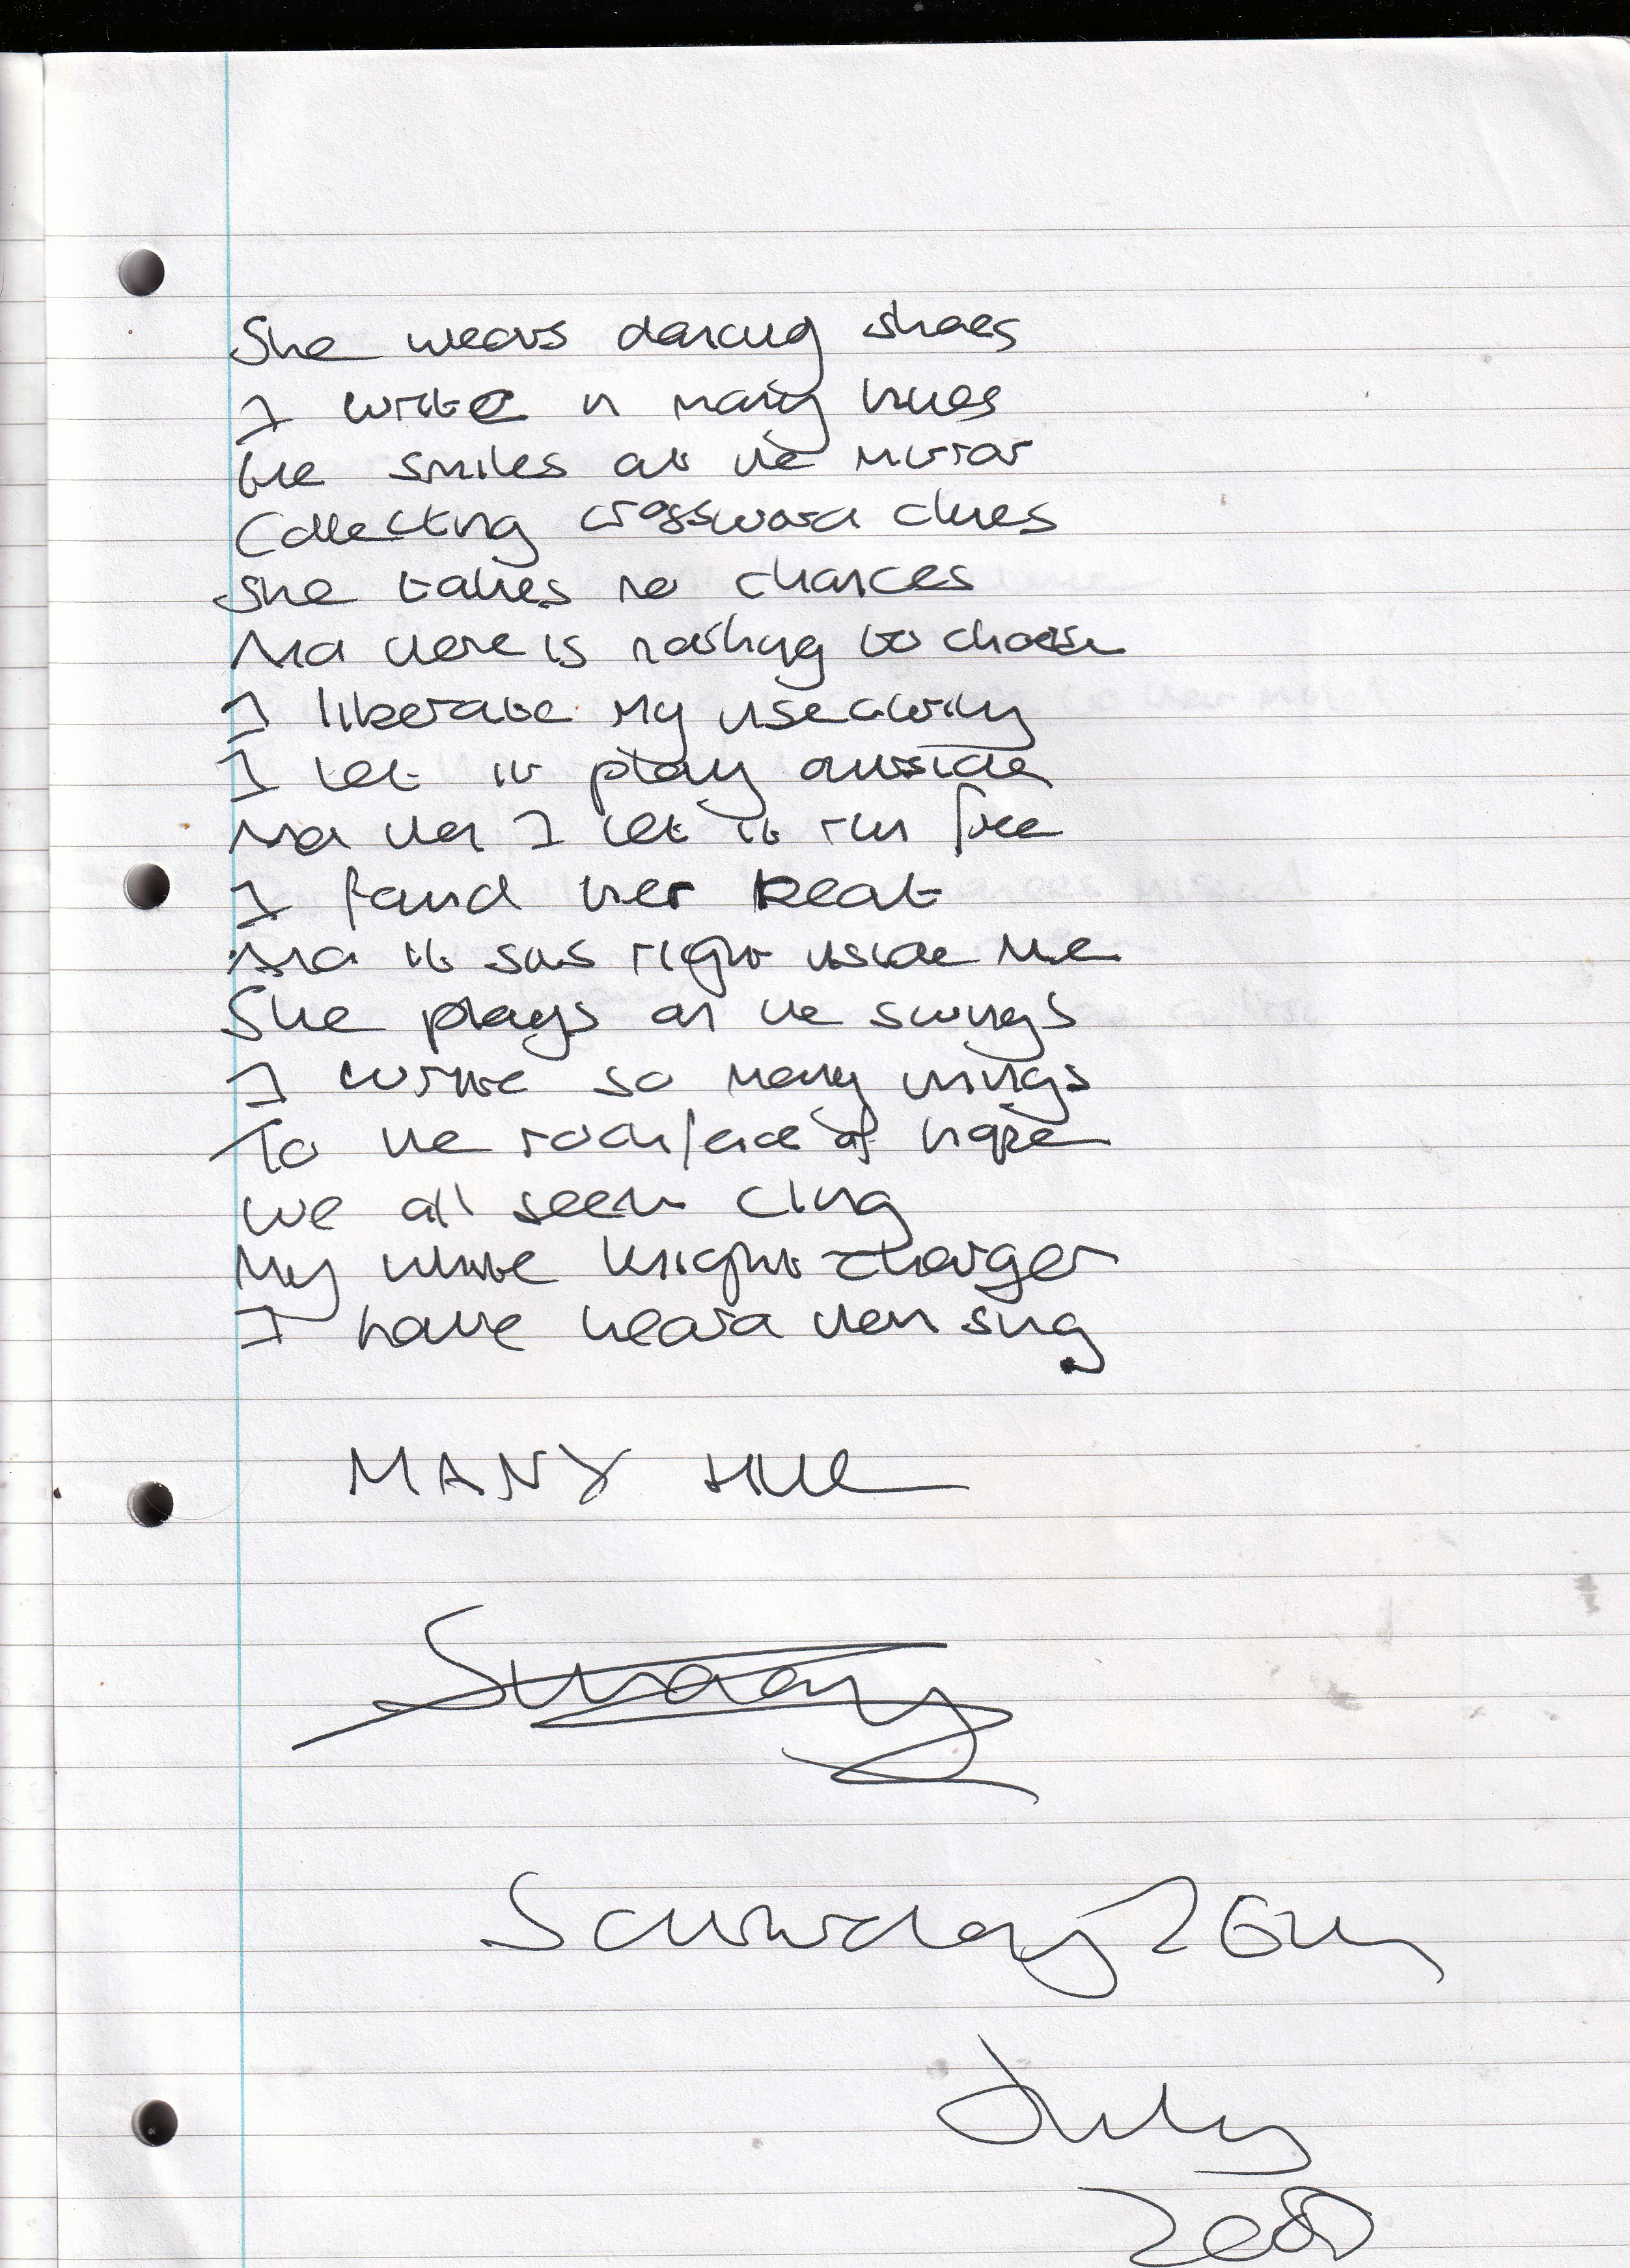 She wears dancing shoes
I write in many hues
He smiles at the mirror
Collecting crossword clues
She takes no chances
And there is nothing to choose
I liberate my insecurity
I let it play outside
And then I let it run free
I found her beat
And it sits right inside me
She plays on the swings
I write so many things
To the rockface of hope
We all seem cling
My white knight charger
I have heard them sing
MANY HUE
Saturday 26th
July
2008